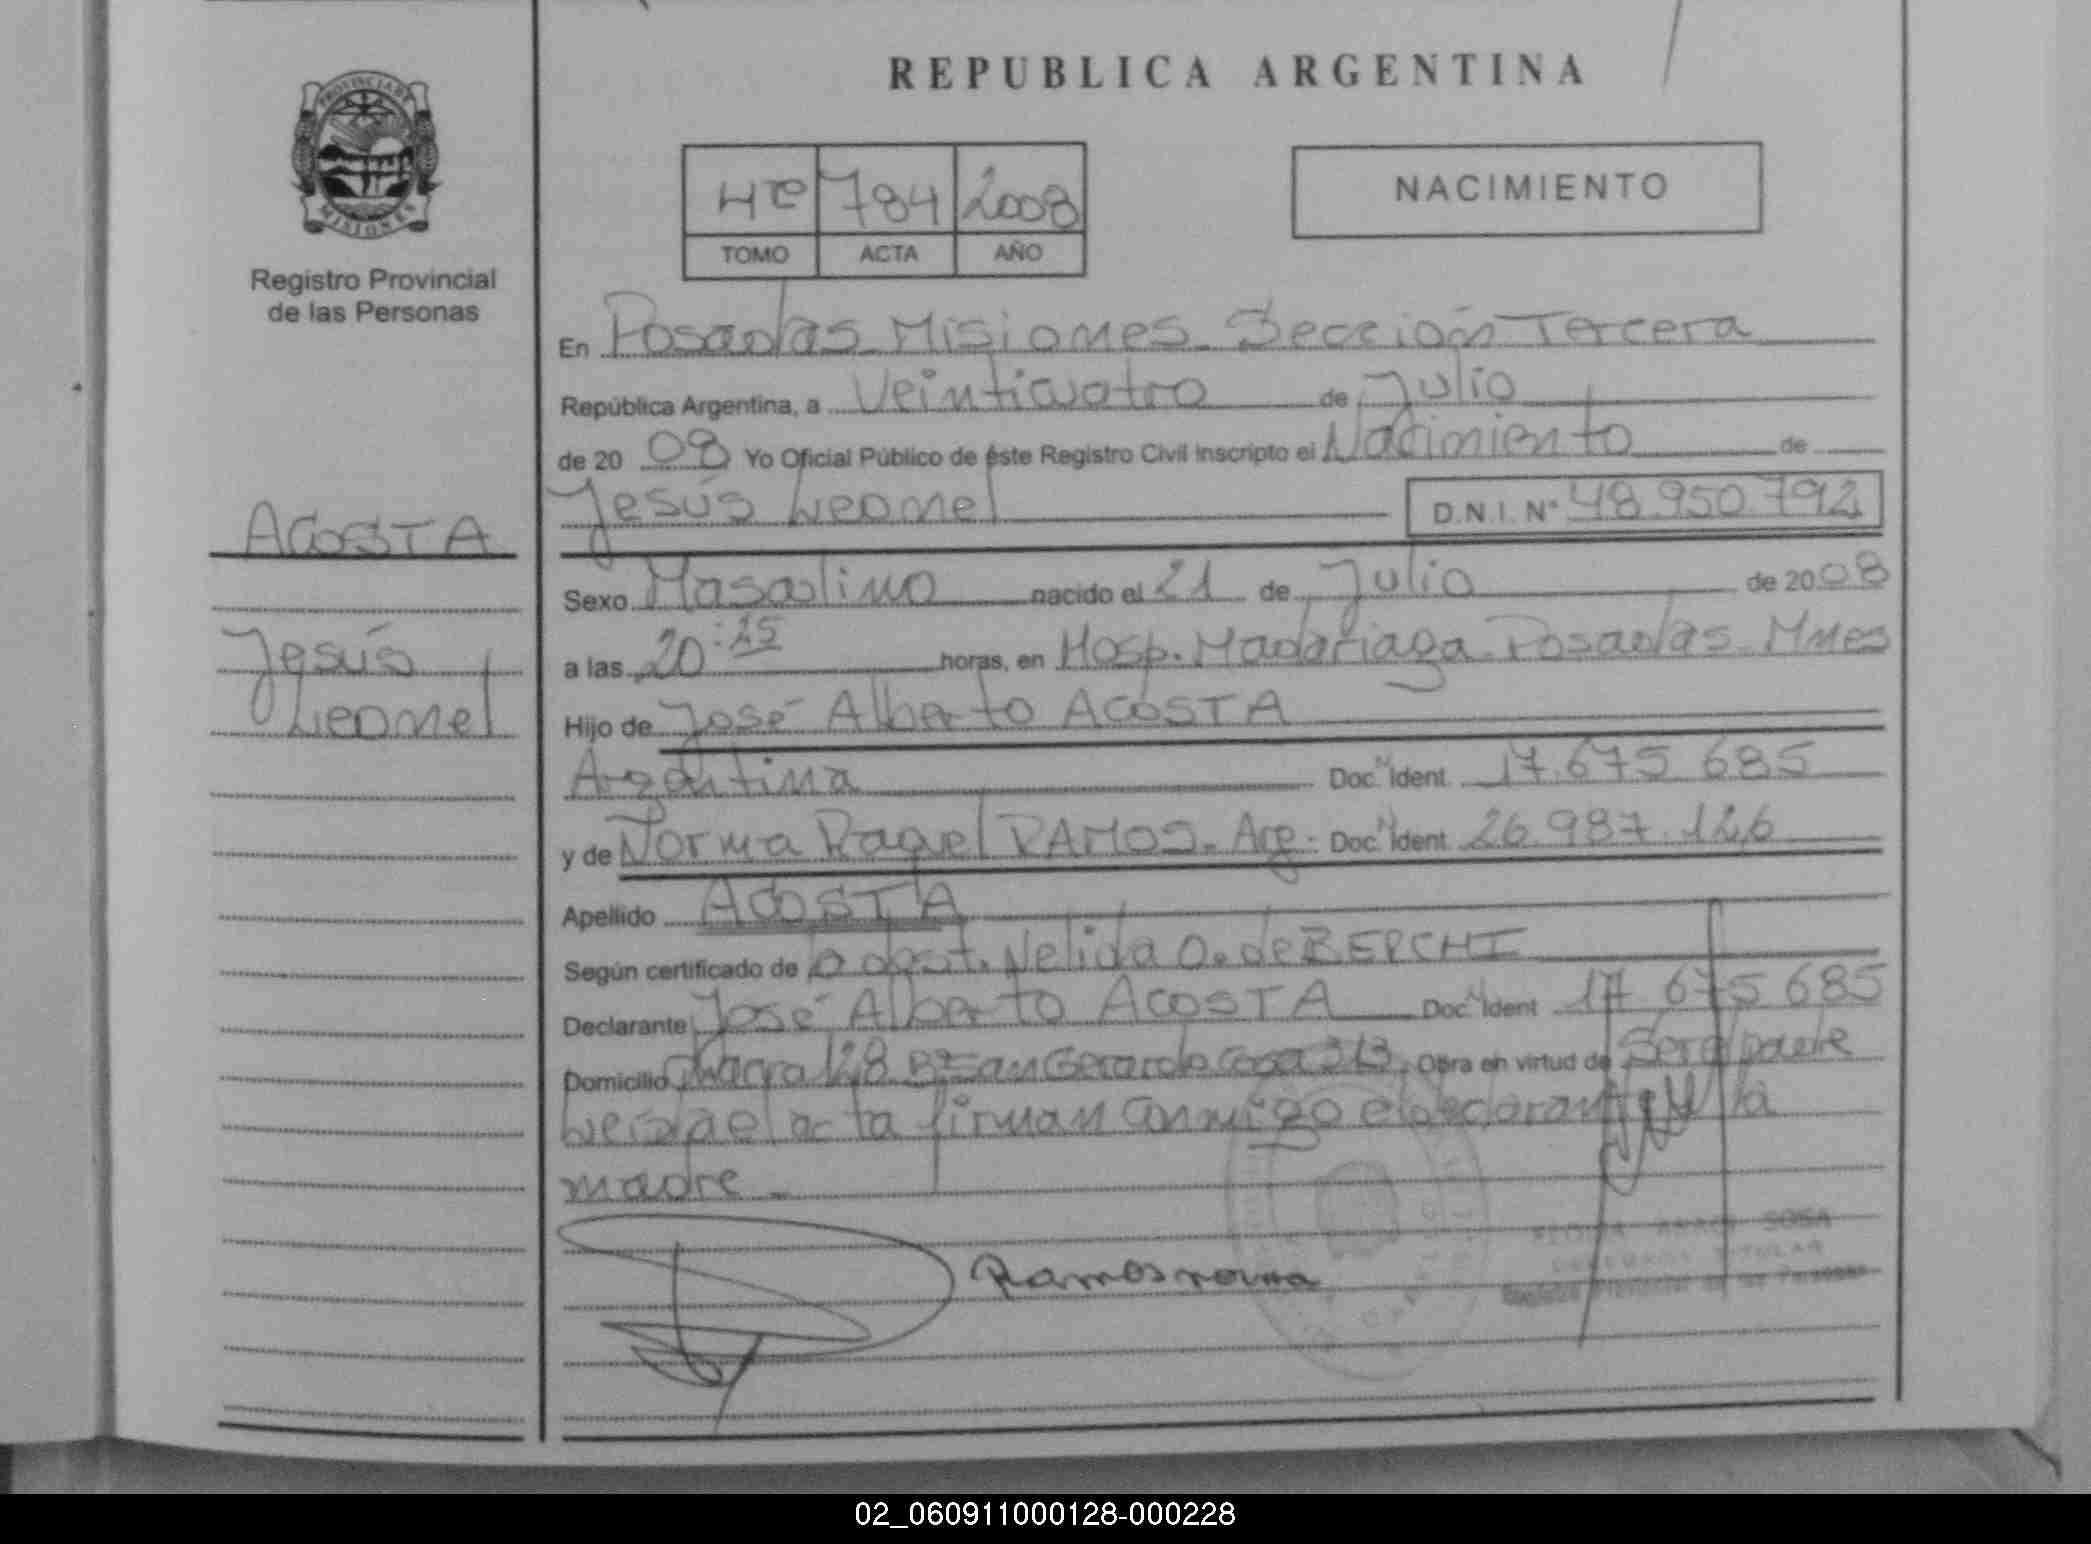 REPUBLICA ARGENTINA
PROVINCIA DE
MISIONES
Registro Provincial
de las Personas
784 2008
TOMO ACTA AÑO
NACIMIENTO
En Posadas Misiones Sección Tercera
República Argentina, a Veinticuatro de Julio
de 20 08 Yo Oficial Público de éste Registro Civil Inscripto el Nacimiento de
Jesús Leonel D.N.I. Nº 48.950.792
ACOSTA
Jesús
Leonel
Sexo Masculino nacido el 21 de Julio de 20 08
a las 20:25 horas, en Hosp. Madariaga Posadas Mnes
Hijo de José Alberto ACOSTA
Argentina Doc. Nº Ident. 17.675.685
y de Norma Raquel RAMOS. Arg. Doc. Nº Ident. 26.987.126
Apellido ACOSTA
Según certificado de Obst. Nelida O. de BERCHI
Declarante José Alberto ACOSTA Doc. Nº Ident 17 675 685
Domicilio Chacra 128 Bº San Gerardo Casa 313. Obra en virtud de Ser el padre
Leida el acta firman conmigo el declarante y la
madre
Ramos norma
SOSA
TITULAR
Registro Provincial de las Personas
02_060911000128-000228